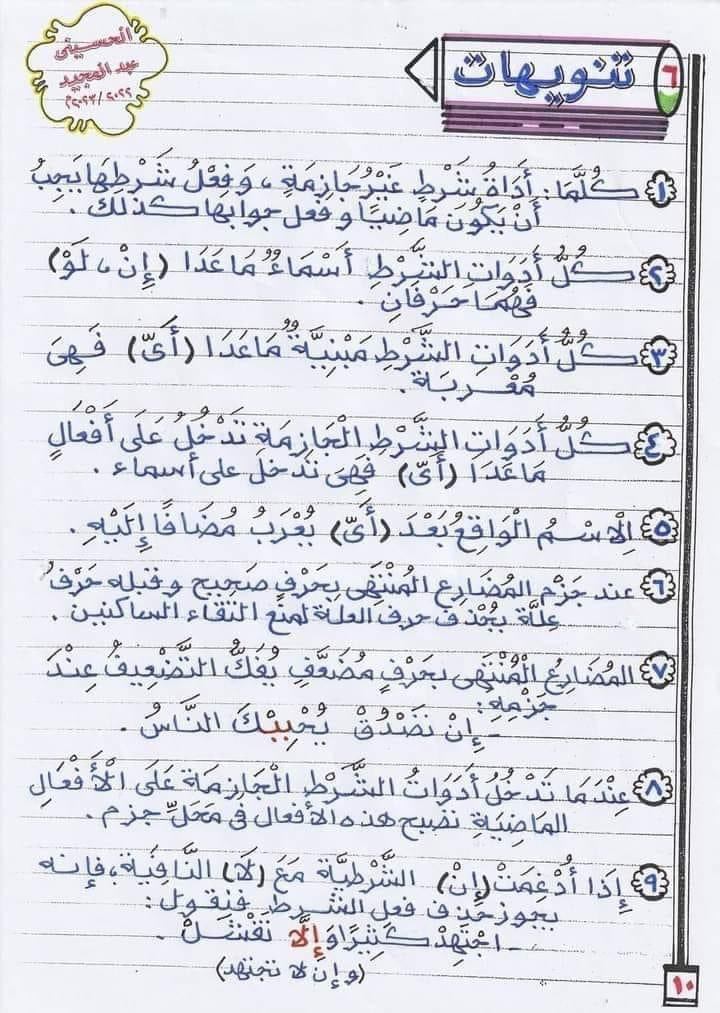 الحسينى
عبد المجيد
٢٠٢٢/٢٠٢٣م
٦
تنويهات
١ كُلَّمَا: أَدَاةُ شَرْطٍ غَيْرُ جَازِمَةٍ، وَفِعْلُ شَرْطِهَا يَجِبُ
أَنْ يَكُونَ مَاضِيًا وفعل جوابها كذلك.
٢ كُلُّ أَدَوَاتِ الشَّرْطِ أَسْمَاءٌ مَا عَدَا (إِنْ، لَوْ)
فَهُمَا حَرْفَانِ.
٣ كُلُّ أَدَوَاتِ الشَّرْطِ مَبْنِيَّةٌ مَاعَدَا (أَىّ) فَهِىَ
مُعْرَبَة.
٤ كُلُّ أَدَوَاتِ الشَّرْطِ الْجَازِمَةِ تَدْخُلُ عَلَى أَفْعَالٍ
مَاعَدَا (أَىّ) فَهِىَ تَدْخل على أسماء.
٥ اِلْاسْمُ الْوَاقِعُ بَعْدَ (أَىّ) يُعْرَبُ مُضَافًا إِلَيْهِ.
٦ عند جَزْمِ المُضَارِعِ المُنْتَهِى بِحَرْفٍ صَحِيحٍ وقبله حَرْفُ
عِلَّة يُحْذَف حرف العلة لمنع التقاء الساكنين.
٧ المُضَارِعُ الْمُنْتَهِى بِحَرْفٍ مُضَعَّفٍ يُفَكُّ التَّضْعِيفُ عِنْدَ
جَزْمِهِ:
- إِنْ تَصْدُقْ يُحْبِبْكَ النَّاسُ.
٨ عِنْدَمَا تَدْخُلُ أَدَوَاتُ الشَّرْطِ الْجَازِمَة عَلَى الْأَفْعَالِ
المَاضِيَةِ تصبح هذه الأفعال فى مَحَلِّ جزم.
٩ إِذَا أُدْغِمَتْ (إِنْ) الشَّرْطِيَّة مَعَ (لَا) النَّافِيَة، فإنه
يجوز حَذف فعل الشرط فنقول:
- اجْتَهِدْ كَثِيرًا وَإِلَّا تَفْشَلْ.
(وإن لا تجتهد)
١٠